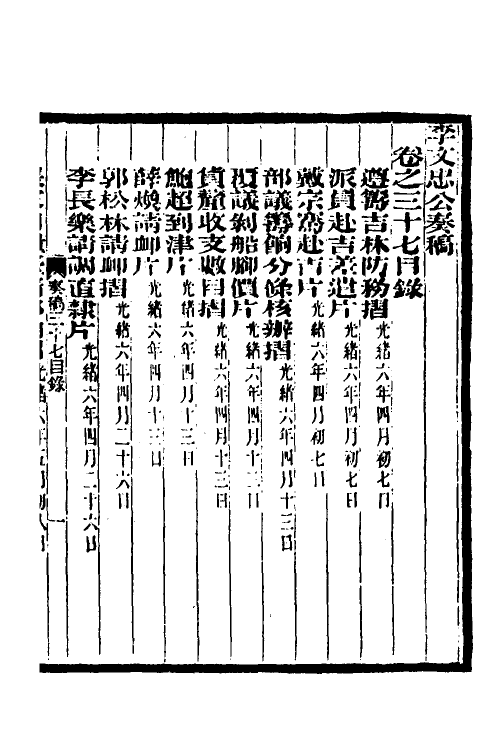 李文忠公奏稿
卷之三十七目錄
遵籌吉林防務摺 光緒六年四月初七日
派員赴吉差遣片 光緒六年四月初七日
戴宗騫赴吉片 光緒六年四月初七日
部議籌餉分條核辦摺 光緒六年四月十三日
覆議剝船腳價片 光緒六年四月十三日
賞需收支數目摺 光緒六年四月十三日
鮑超到津片 光緒六年四月十三日
薛煥請卹片 光緒六年四月十三日
郭松林請卹摺 光緒六年四月二十六日
李長樂請調直隸片 光緒六年四月二十六日
奏稿三十七目錄 一